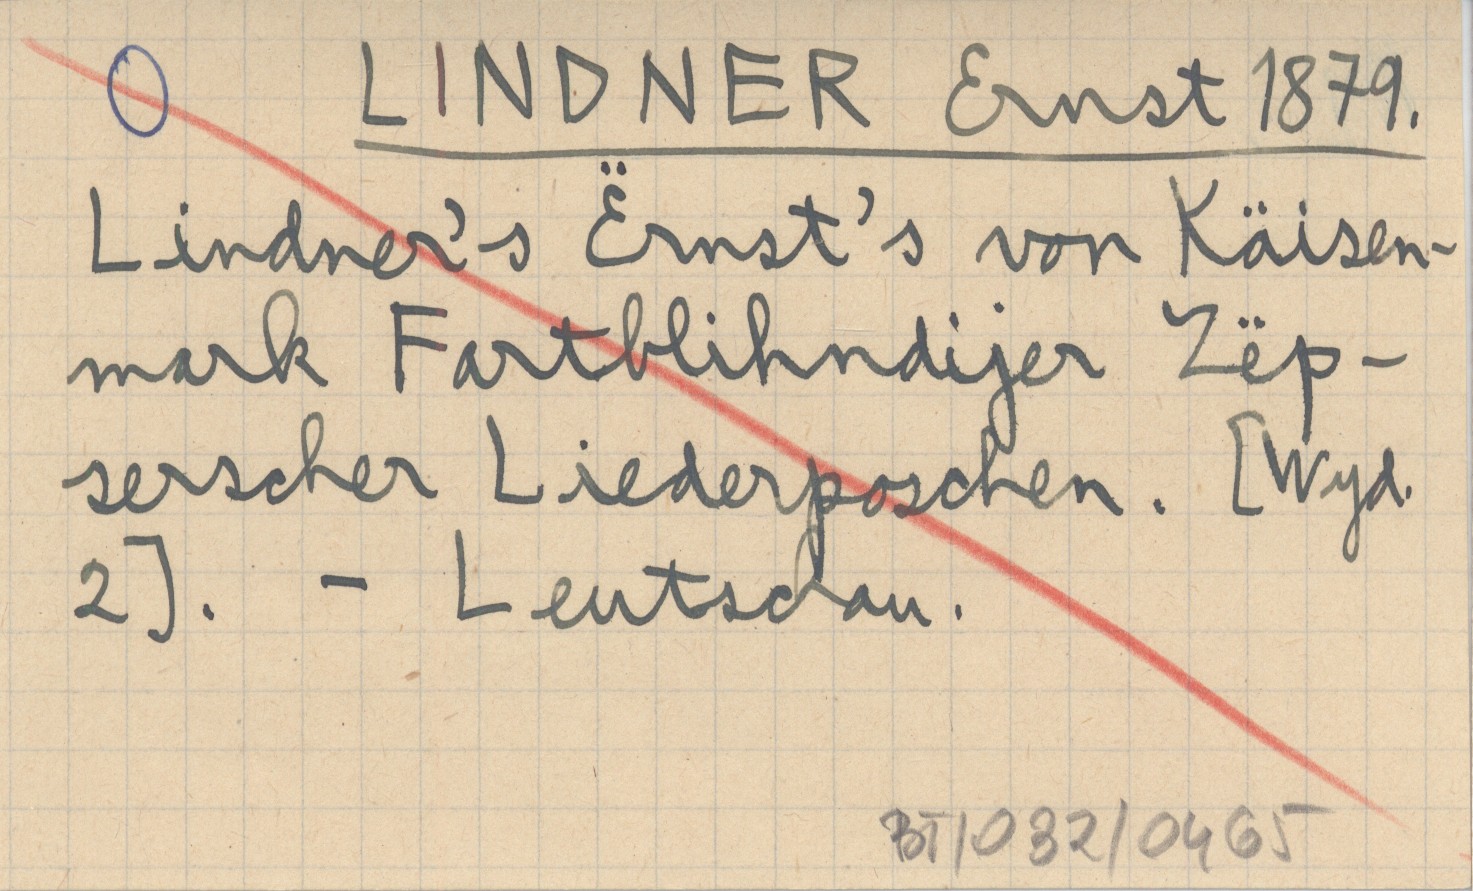 LINDNER Ernst 1879.
Lindner's Ërnst's von Käisen-
mark Fartblihndijer Zëp-
serscher Liederposchen. [Wyd.
2]. - Leutschau.
BT/032/0465